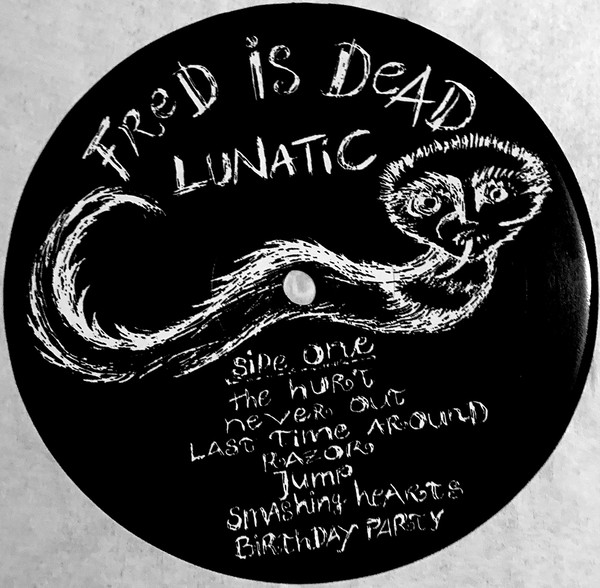 FReD iS DeAD
LUNATiC
SiDe One
the huRt
neveR Out
LAST Time AROUnD
RAZOR
Jump
SmAShing heARtS
BiRthDAY PARtY